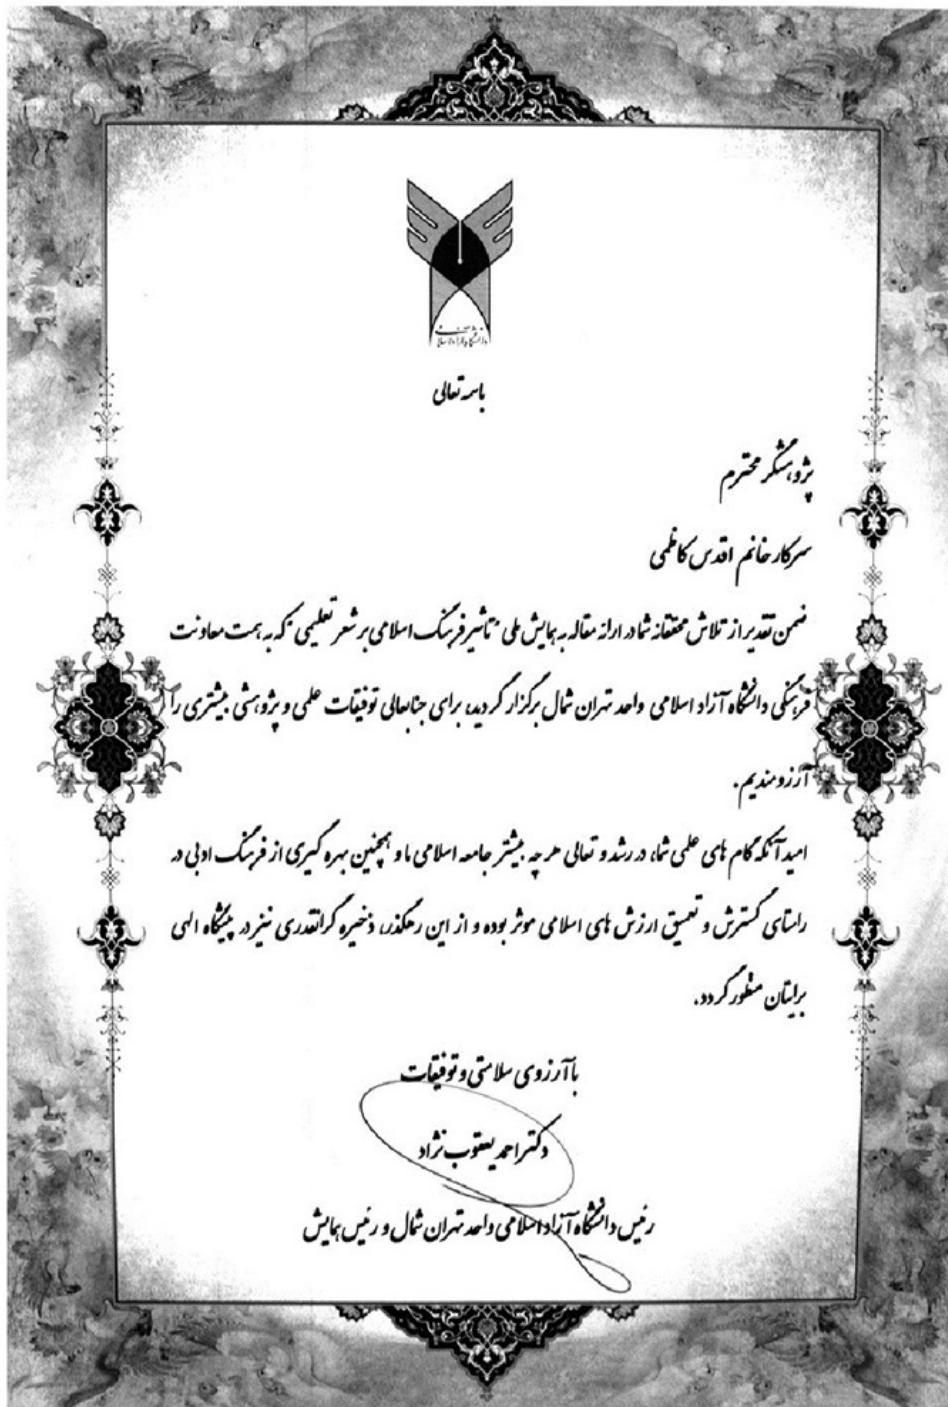 دانشگاه آزاد اسلامی
باسمه تعالی
پژوهشگر محترم
سرکار خانم اقدس کاظمی
ضمن تقدیر از تلاش محققانه شما در ارائه مقاله به همایش ملی "تاثیر فرهنگ اسلامی بر شعر تعلیمی" که به همت معاونت
فرهنگی دانشگاه آزاد اسلامی واحد تهران شمال برگزار گردید، برای جنابعالی توفیقات علمی و پژوهشی بیشتری را
آرزومندیم.
امید آنکه گام های علمی شما، در رشد و تعالی هر چه بیشتر جامعه اسلامی ما و همچنین بهره گیری از فرهنگ ادبی در
راستای گسترش و تعمیق ارزش های اسلامی موثر بوده و از این رهگذر، ذخیره گرانقدری نیز در پیشگاه الهی
برایتان منظور گردد.
با آرزوی سلامتی و توفیقات
دکتر احمد یعقوب نژاد
رئیس دانشگاه آزاد اسلامی واحد تهران شمال و رئیس همایش